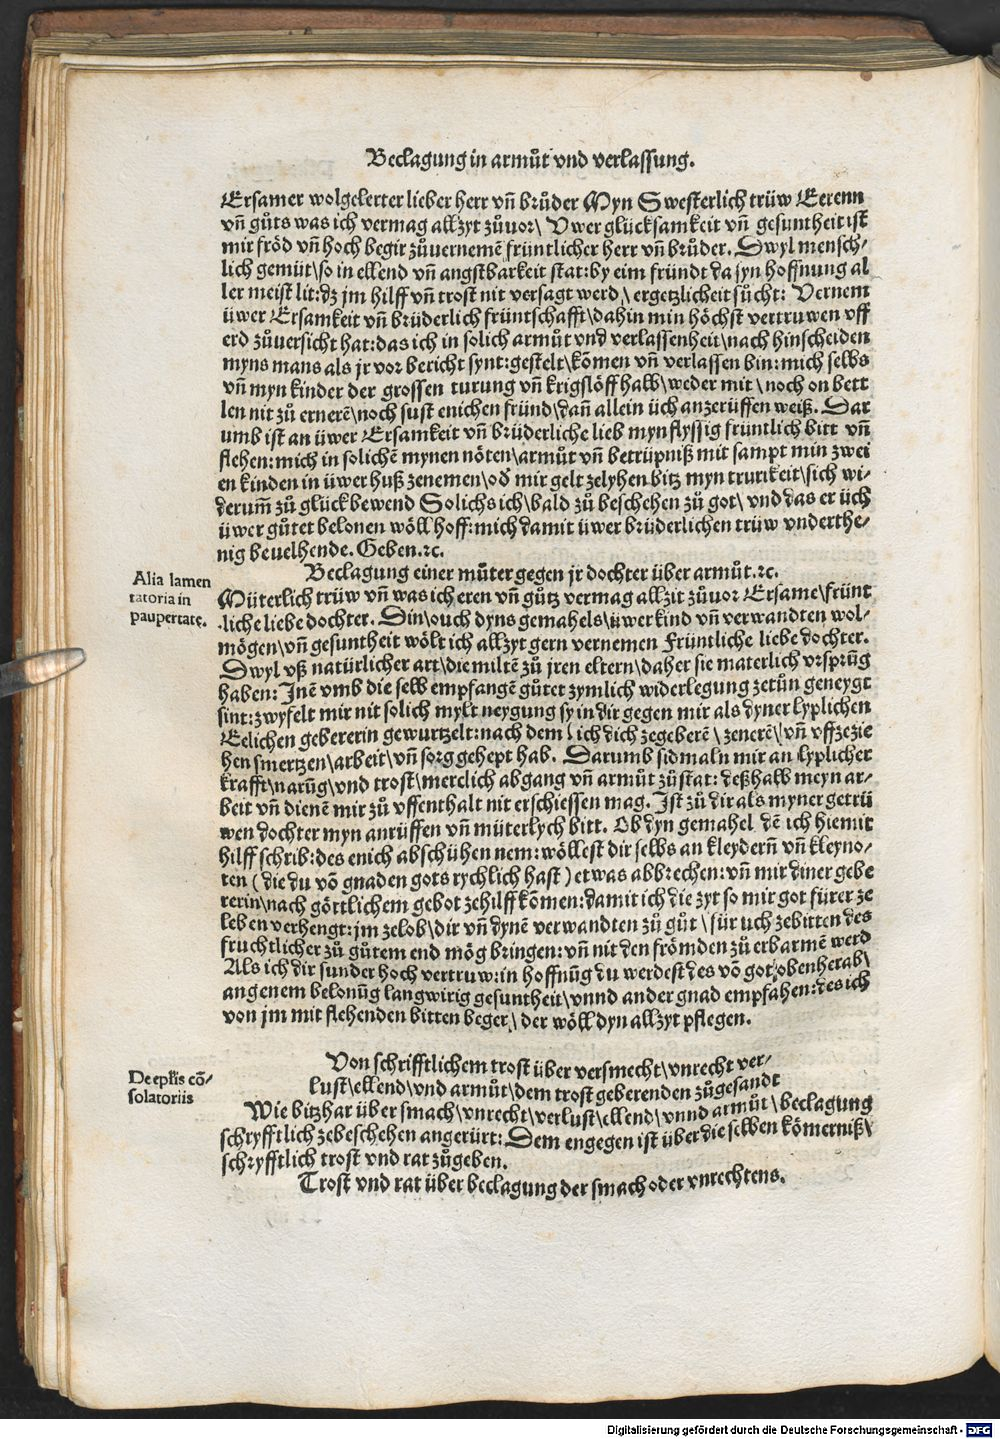 Beclagung in armůt vnd verlassung.
Ersamer wolgelerter lieber herr vñ brůder Myn Swesterlich trüw Eerenn
vñ gůts was ich vermag allzyt zůuor\ Vwer glücksamkeit vñ gesuntheit ist
mir fröd vñ hoch begir zůuernemẽ früntlicher herr vñ brůder. Swyl mensch⸗
lich gemüt\ so in ellend vñ angstbarkeit stat: by eim fründt da syn hoffnung al
ler meist lit: dz jm hilff vñ trost nit versagt werd\ ergetzlicheit sůcht: Vernem
üwer Ersamkeit vñ brüderlich früntschafft\ dahin min höchst vertruwen vff
erd zůuersicht hat: das ich in solich armůt vnd verlassenheit\ nach hinscheiden
myns mans als jr vor bericht synt: gestelt\ kõmen vñ verlassen bin: mich selbs
vñ myn kinder der grossen turung vñ krigslöff halb\ weder mit\ noch on bett
len nit zů ernerẽ\ noch sust enichen fründ\ dañ allein üch anzerüffen weiß. Dar
umb ist an üwer Ersamkeit vñ brüderliche lieb myn flyssig früntlich bitt vñ
flehen: mich in solichẽ mynen nöten\ armůt vñ betrüpniß mit sampt min zwei
en kinden in üwer huß zenemen\ od᷑ mir gelt zelyhen bitz myn trurikeit\ sich wi⸗
derum̃ zů glück bewend Solichs ich\ bald zů beschehen zů got\ vnd das er üch
üwer gůtet belonen wöll hoff: mich damit üwer brüderlichen trüw vnderthe⸗
nig beuelhende. Geben. ꝛc.
Beclagung einer můter gegen jr dochter über armůt. ꝛc.
Alia lamen
tatoria in
paupertatę.
Müterlich trüw vñ was ich eren vñ gůtz vermag allzit zůuor Ersame\ frünt
liche liebe dochter. Din\ ouch dyns gemahels\ üwer kind vñ verwandten wol⸗
mögen\ vñ gesuntheit wölt ich allzyt gern vernemen Früntliche liebe dochter.
Swyl vß natürlicher art\ die miltẽ zů jren eltern\ daher sie materlich vrsprũg
haben: Inẽ vmb die selb empfangẽ gůtet zymlich widerlegung zetůn geneygt
sint: zwyfelt mir nit solich mylt neygung sy in dir gegen mir als dyner lyplichen
Eelichen gebererin gewurtzelt: nach dem\ ich dich zegeberẽ\ zenerẽ\ vñ vffzezie
hen smertzen\ arbeit\ vñ sorg gehept hab. Darumb sidmaln mir an lyplicher
krafft\ narũg\ vnd trost\ merclich abgang vñ armůt zůstat: deßhalb meyn ar⸗
beit vñ dienẽ mir zů vffenthalt nit erschiessen mag. Ist zů dir als myner getrü
wen dochter myn anrüffen vñ müterlych bitt. Ob dyn gemahel dẽ ich hiemit
hilff schrib: des enich abschühen nem: wöllest dir selbs an kleydern̄ vñ kleyno⸗
ten (die du võ gnaden gots rychlich hast) etwas abbrechen: vñ mir diner gebe
rerin\ nach göttlichem gebot zehilff kõmen: damit ich die zyt so mir got fürer ze
leben verhengt: jm zelob\ dir vñ dynẽ verwandten zů gůt\ für uch zebitten des
fruchtlicher zů gůtem end mög bringen: vñ nit den frömden zů erbarmẽ werd
Als ich dir sunder hoch vertruw: in hoffnũg du werdest des võ got\ obenherab\
angenem belonũg langwirig gesuntheit\ vnnd ander gnad empfahen: des ich
von jm mit flehenden bitten beger\ der wöll dyn allzyt pflegen.
Von schrifftlichem trost über versmecht\ vnrecht ver⸗
lust\ ellend\ vnd armůt\ dem trost geberenden zůgesandt
De epl̃is cõ⸗
solatoriis
Wie bitzhar über smach\ vnrecht\ verlust\ ellend\ vnnd armůt\ beclagung
schryfftlich zebeschehen angerürt: Dem engegen ist über die selben kömerniß\
schryfftlich trost vnd rat zůgeben.
Trost vnd rat über beclagung der smach oder vnrechtens.
Digitalisierung gefördert durch die Deutsche Forschungsgemeinschaft - DFG